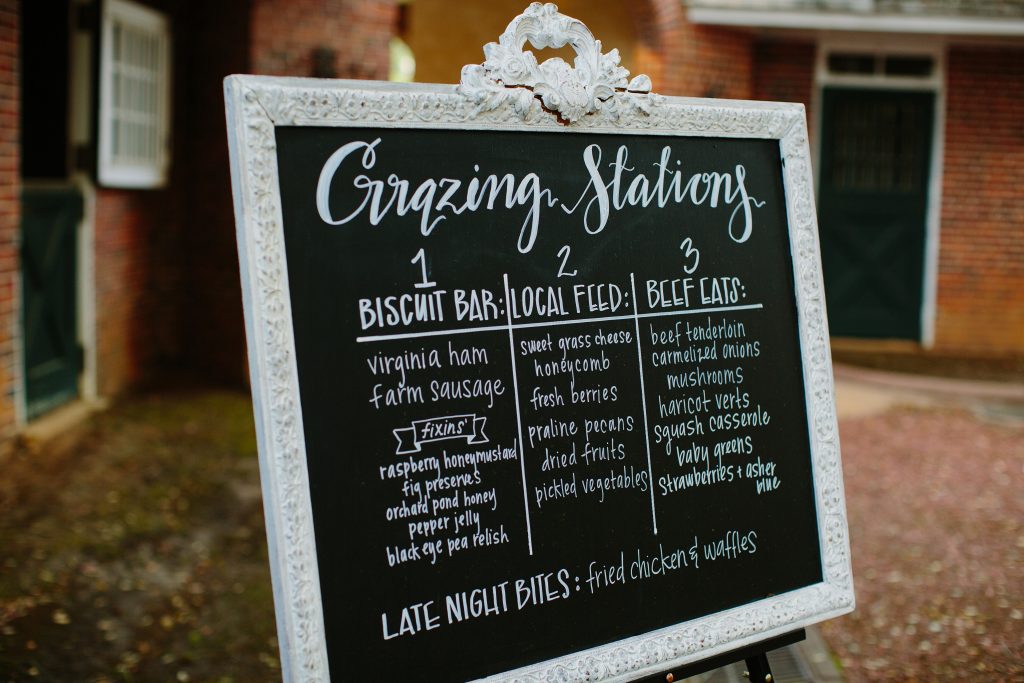 Grazing Stations
1
BISCUIT BAR:
virginia ham
farm sausage
fixins'
raspberry honeymustard
fig preserves
orchard pond honey
pepper jelly
black eye pea relish
2
LOCAL FEED:
sweet grass cheese
honeycomb
fresh berries
praline pecans
dried fruits
pickled vegetables
3
BEEF EATS:
beef tenderloin
carmelized onions
mushrooms
haricot verts
squash casserole
baby greens
strawberries + asher
blue
LATE NIGHT BITES: fried chicken & waffles